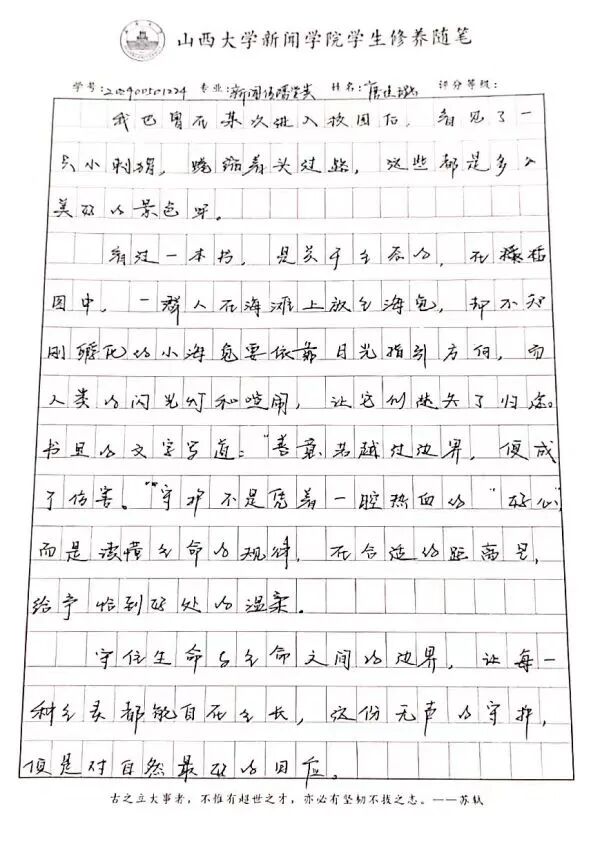 山西大学新闻学院学生修养随笔
学号: 专业:新闻传播学类 姓名: 评分等级:
我也曾在某次进入校园后,看见了一
只小刺猬,蜷缩着头过路,这些都是多么
美好的景色呀。
看过一本书,是关于生态的,在插
图中,一群人在海滩上放生海龟,却不知
刚孵化的小海龟要依靠月光指引方向,而
人类的闪光灯和喧闹,让它们迷失了归途。
书里的文字写道:“善意若越过边界,便成
了伤害。”“守护不是凭着一腔热血的“好心”
而是读懂生命的规律,在合适的距离里,
给予恰到好处的温柔。
守住生命与生命之间的边界,让每一
种生灵都能自在生长,这份无声的守护,
便是对自然最好的回应。
古之立大事者,不惟有超世之才,亦必有坚韧不拔之志。——苏轼